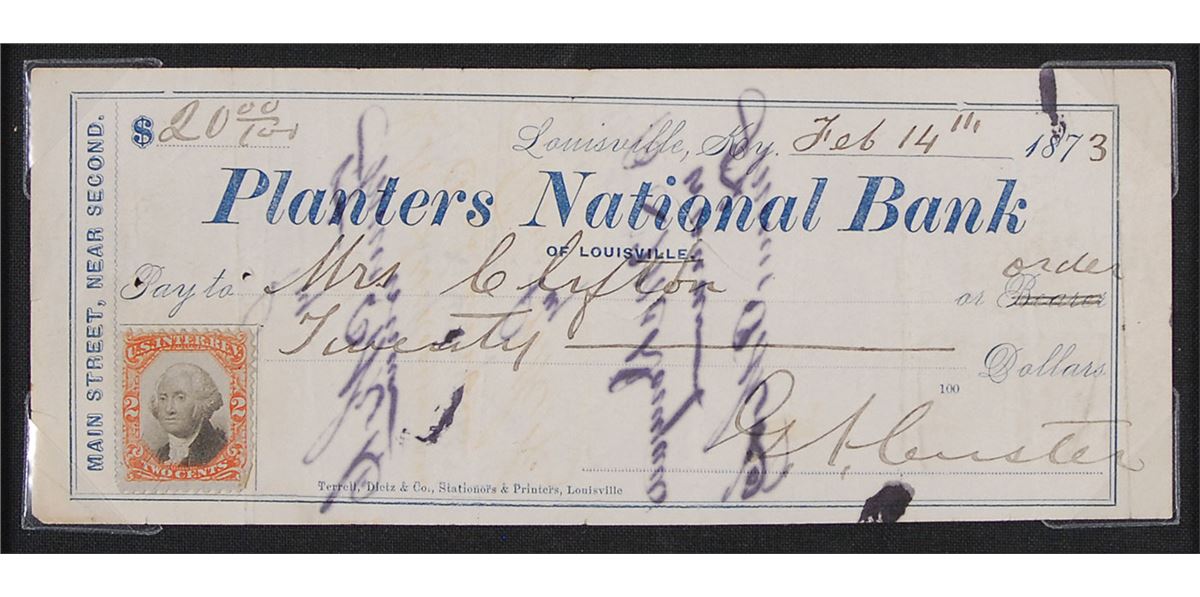 MAIN STREET, NEAR SECOND.
$ 20 00/100
Louisville, Ky. Feb 14th 1873
Planters National Bank
OF LOUISVILLE.
order
Pay to Mrs Clifton or Bearer
Twenty Dollars
100
G A Custer
U.S. INTER. REV.
2 2
TWO CENTS
Terrell, Dietz & Co., Stationers & Printers, Louisville